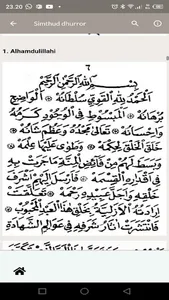 23.20
Simthud dhurror
1. Alhamdulillahi
٦
بِسْمِ اللهِ الرَّحْمٰنِ الرَّحِيْمِ
اَلْحَمْدُ لِلّٰهِ الْقَوِيِّ سُلْطَانُهُ ۞ اَلْوَاضِحِ
بُرْهَانُهُ ۞ اَلْمَبْسُوْطِ فِى الْوُجُوْدِ كَرَمُهُ
وَاِحْسَانُهُ ۞ تَعَالَى مَجْدُهُ وَعَظُمَ شَانُهُ ۞
خَلَقَ الْخَلْقَ لِحِكْمَةٍ ۞ وَطَوَى عَلَيْهَا عِلْمَهُ ۞
وَبَسَطَ لَهُمْ مِنْ فَائِضِ الْمِنَّةِ مَاجَرَتْ بِهِ
فِى اَقْدَارِهِ الْقِسْمَةُ ۞ فَاَرْسَلَ اِلَيْهِمْ اَشْرَفَ
خَلْقِهِ وَاَجَلَّ عَبِيْدِهِ رَحْمَةً ۞ تَعَلَّقَتْ
اِرَادَتُهُ الْاَزَلِيَّةُ بِخَلْقِ هٰذَا الْعَبْدِ الْمَحْبُوْبِ ۞
فَانْتَشَرَتْ اٰثَارُ شَرَفِهِ فِى عَوَالِمِ الشَّهَادَةِ